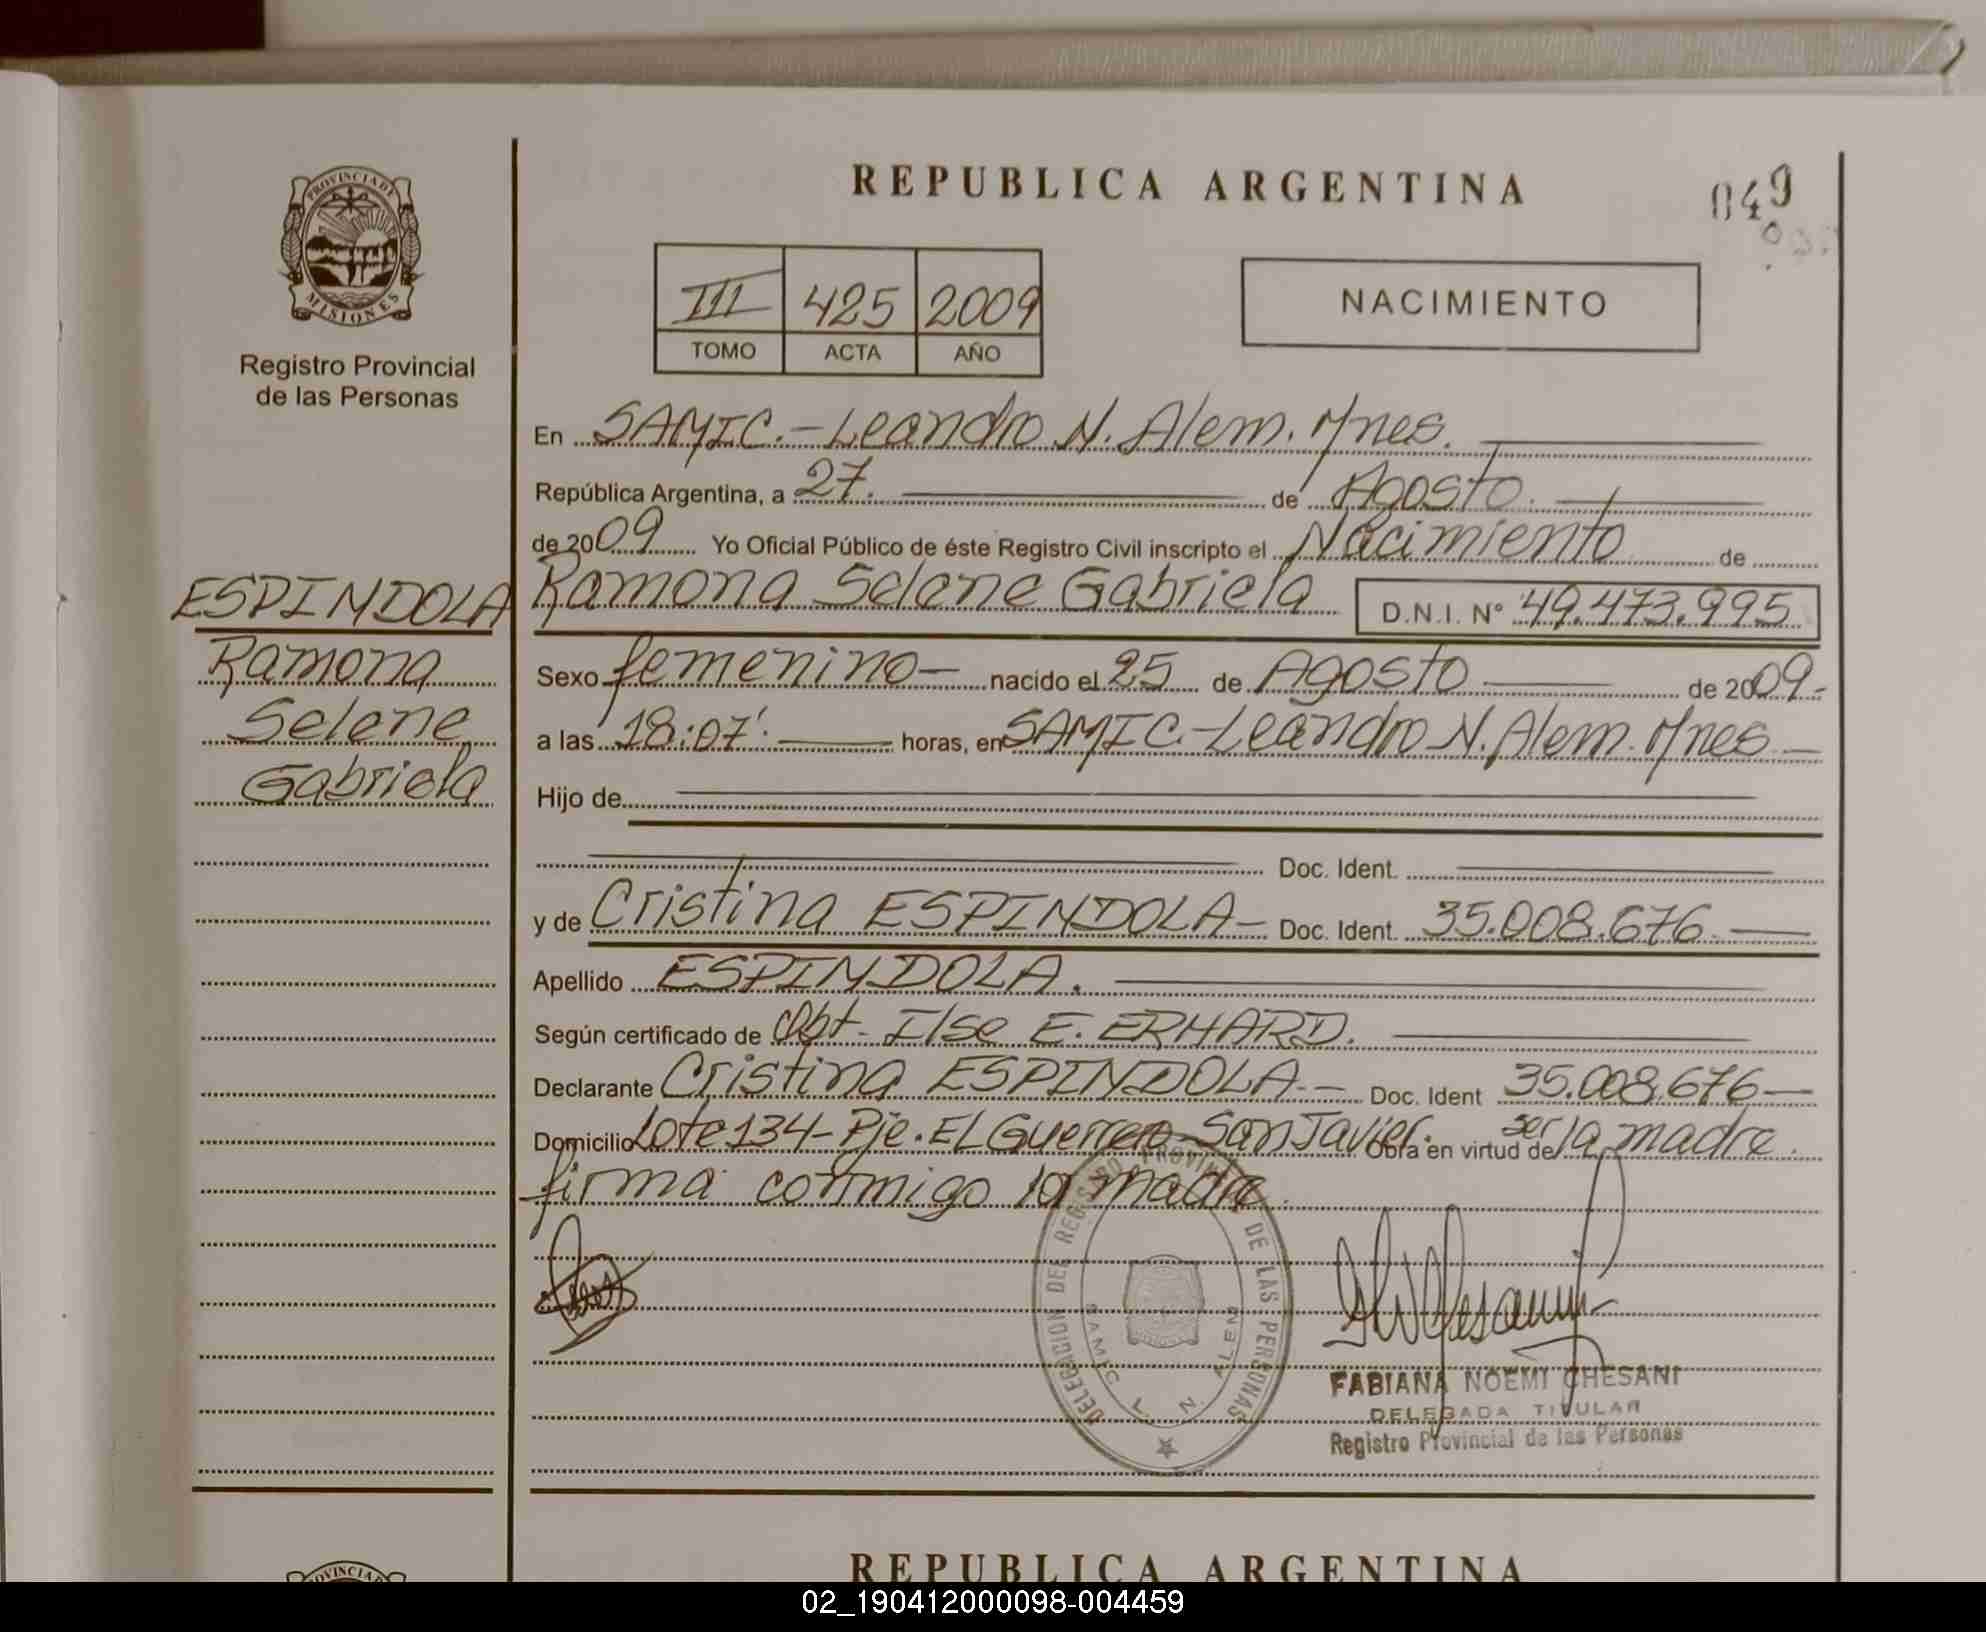 REPUBLICA ARGENTINA
049
PROVINCIA DE MISIONES
Registro Provincial
de las Personas
III 425 2009
TOMO ACTA AÑO
NACIMIENTO
En SAMIC.- Leandro N. Alem. Mnes.
República Argentina, a 27. de Agosto.
de 2009 Yo Oficial Público de éste Registro Civil inscripto el Nacimiento de
Ramona Selene Gabriela D.N.I. Nº 49.473.995
ESPINDOLA
Ramona
Selene
Gabriela
Sexo femenino- nacido el 25 de Agosto de 2009-
a las 18:07'. horas, en SAMIC.-Leandro N. Alem. Mnes
Hijo de
Doc. Ident.
y de Cristina ESPINDOLA- Doc. Ident. 35.008.676
Apellido ESPINDOLA.
Según certificado de Obt. Ilse E. ERHARD.
Declarante Cristina ESPINDOLA.- Doc. Ident 35.008.676-
Domicilio Lote 134- Pje. El Guerrero San Javier. Obra en virtud de ser la madre.
firma conmigo la madre.
DELEGACION DEL REGISTRO PROVINCIAL DE LAS PERSONAS
SAMIC L. N. ALEM
FABIANA NOEMI CHESANI
DELEGADA TITULAR
Registro Provincial de las Personas
REPUBLICA ARGENTINA
02_190412000098-004459